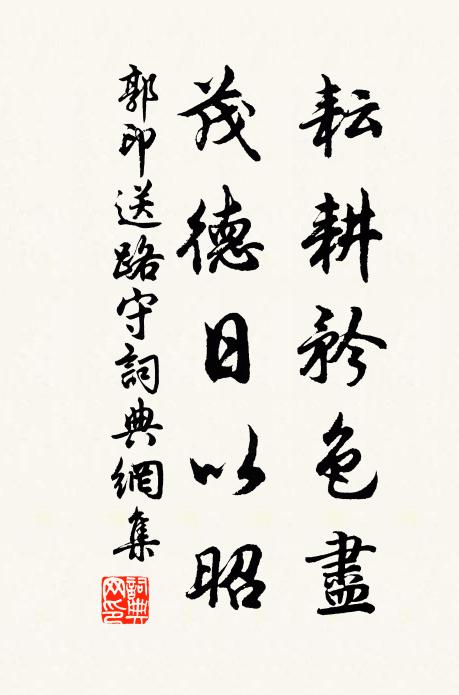 耘耕矜色盡
茂德日以昭
郭印送路守詞典網集
詞典網印